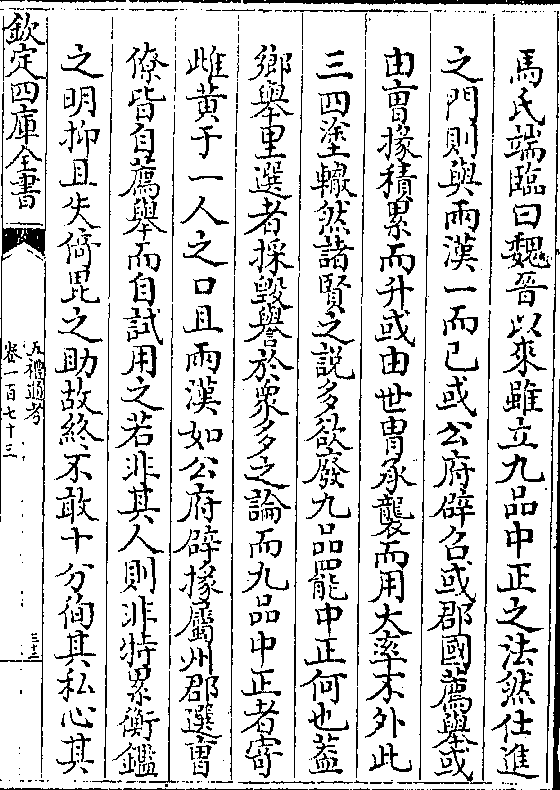 馬氏端臨曰魏晉以來雖立九品中正之法然仕進
之門則與兩漢一而已或公府辟召或郡國薦舉或
由曹掾積累而升或由世胄承襲而用大率不外此
三四塗轍然諸賢之說多欲廢九品罷中正何也葢
鄉舉里選者採毀譽於衆多之論而九品中正者寄
雌黃于一人之口且兩漢如公府辟掾屬州郡選曹
僚皆自薦舉而自試用之若非其人則非特累衡鑑
之明抑且失倚毘之助故終不敢十分徇其私心其
欽定四庫全書
五禮通考
卷一百七十三
三十三